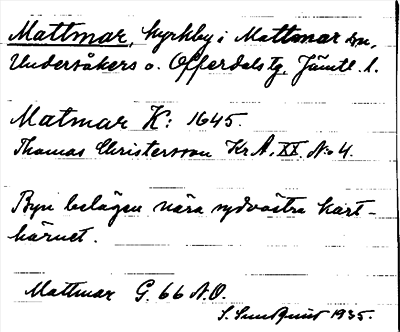 Mattmar, kyrkby i Mattmar sn,
Undersåkers o. Offerdals tg. Jämtl. l.
Matmar K: 1645.
Thomas Christersson Kr A. XX No 4.
Byn belägen nära sydvästra kart-
hörnet.
Mattmar G. 66 N.O.
S. Sundquist 1935.